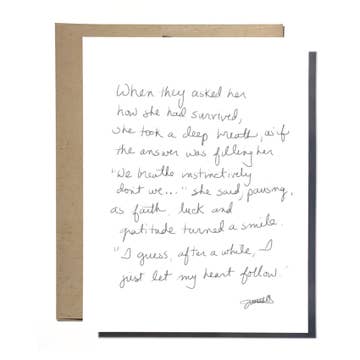 When they asked her
how she had survived,
she took a deep breath, as if
the answer was filling her
"We breathe instinctively
dont we..." she said, pausing,
as faith luck and
gratitude turned a smile.
"I guess, after a while, I
just let my heart follow."